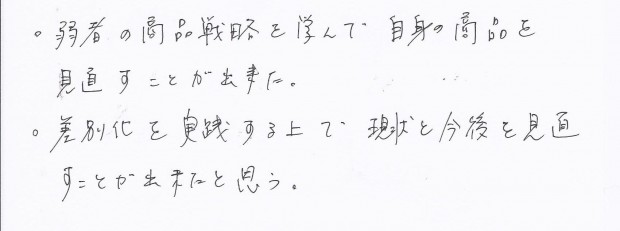 。弱者の商品戦略を学んで自身の商品を
見直すことが出来た。
。差別化を実践する上で現状と今後を見直
すことが出来たと思う。